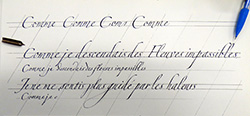 Comme Comme Com Comme
Comme je descendais des Fleuves impassibles
Comme je descendais des fleuves impassibles
Je ne me sentis plus guidé par les haleurs
Comme je